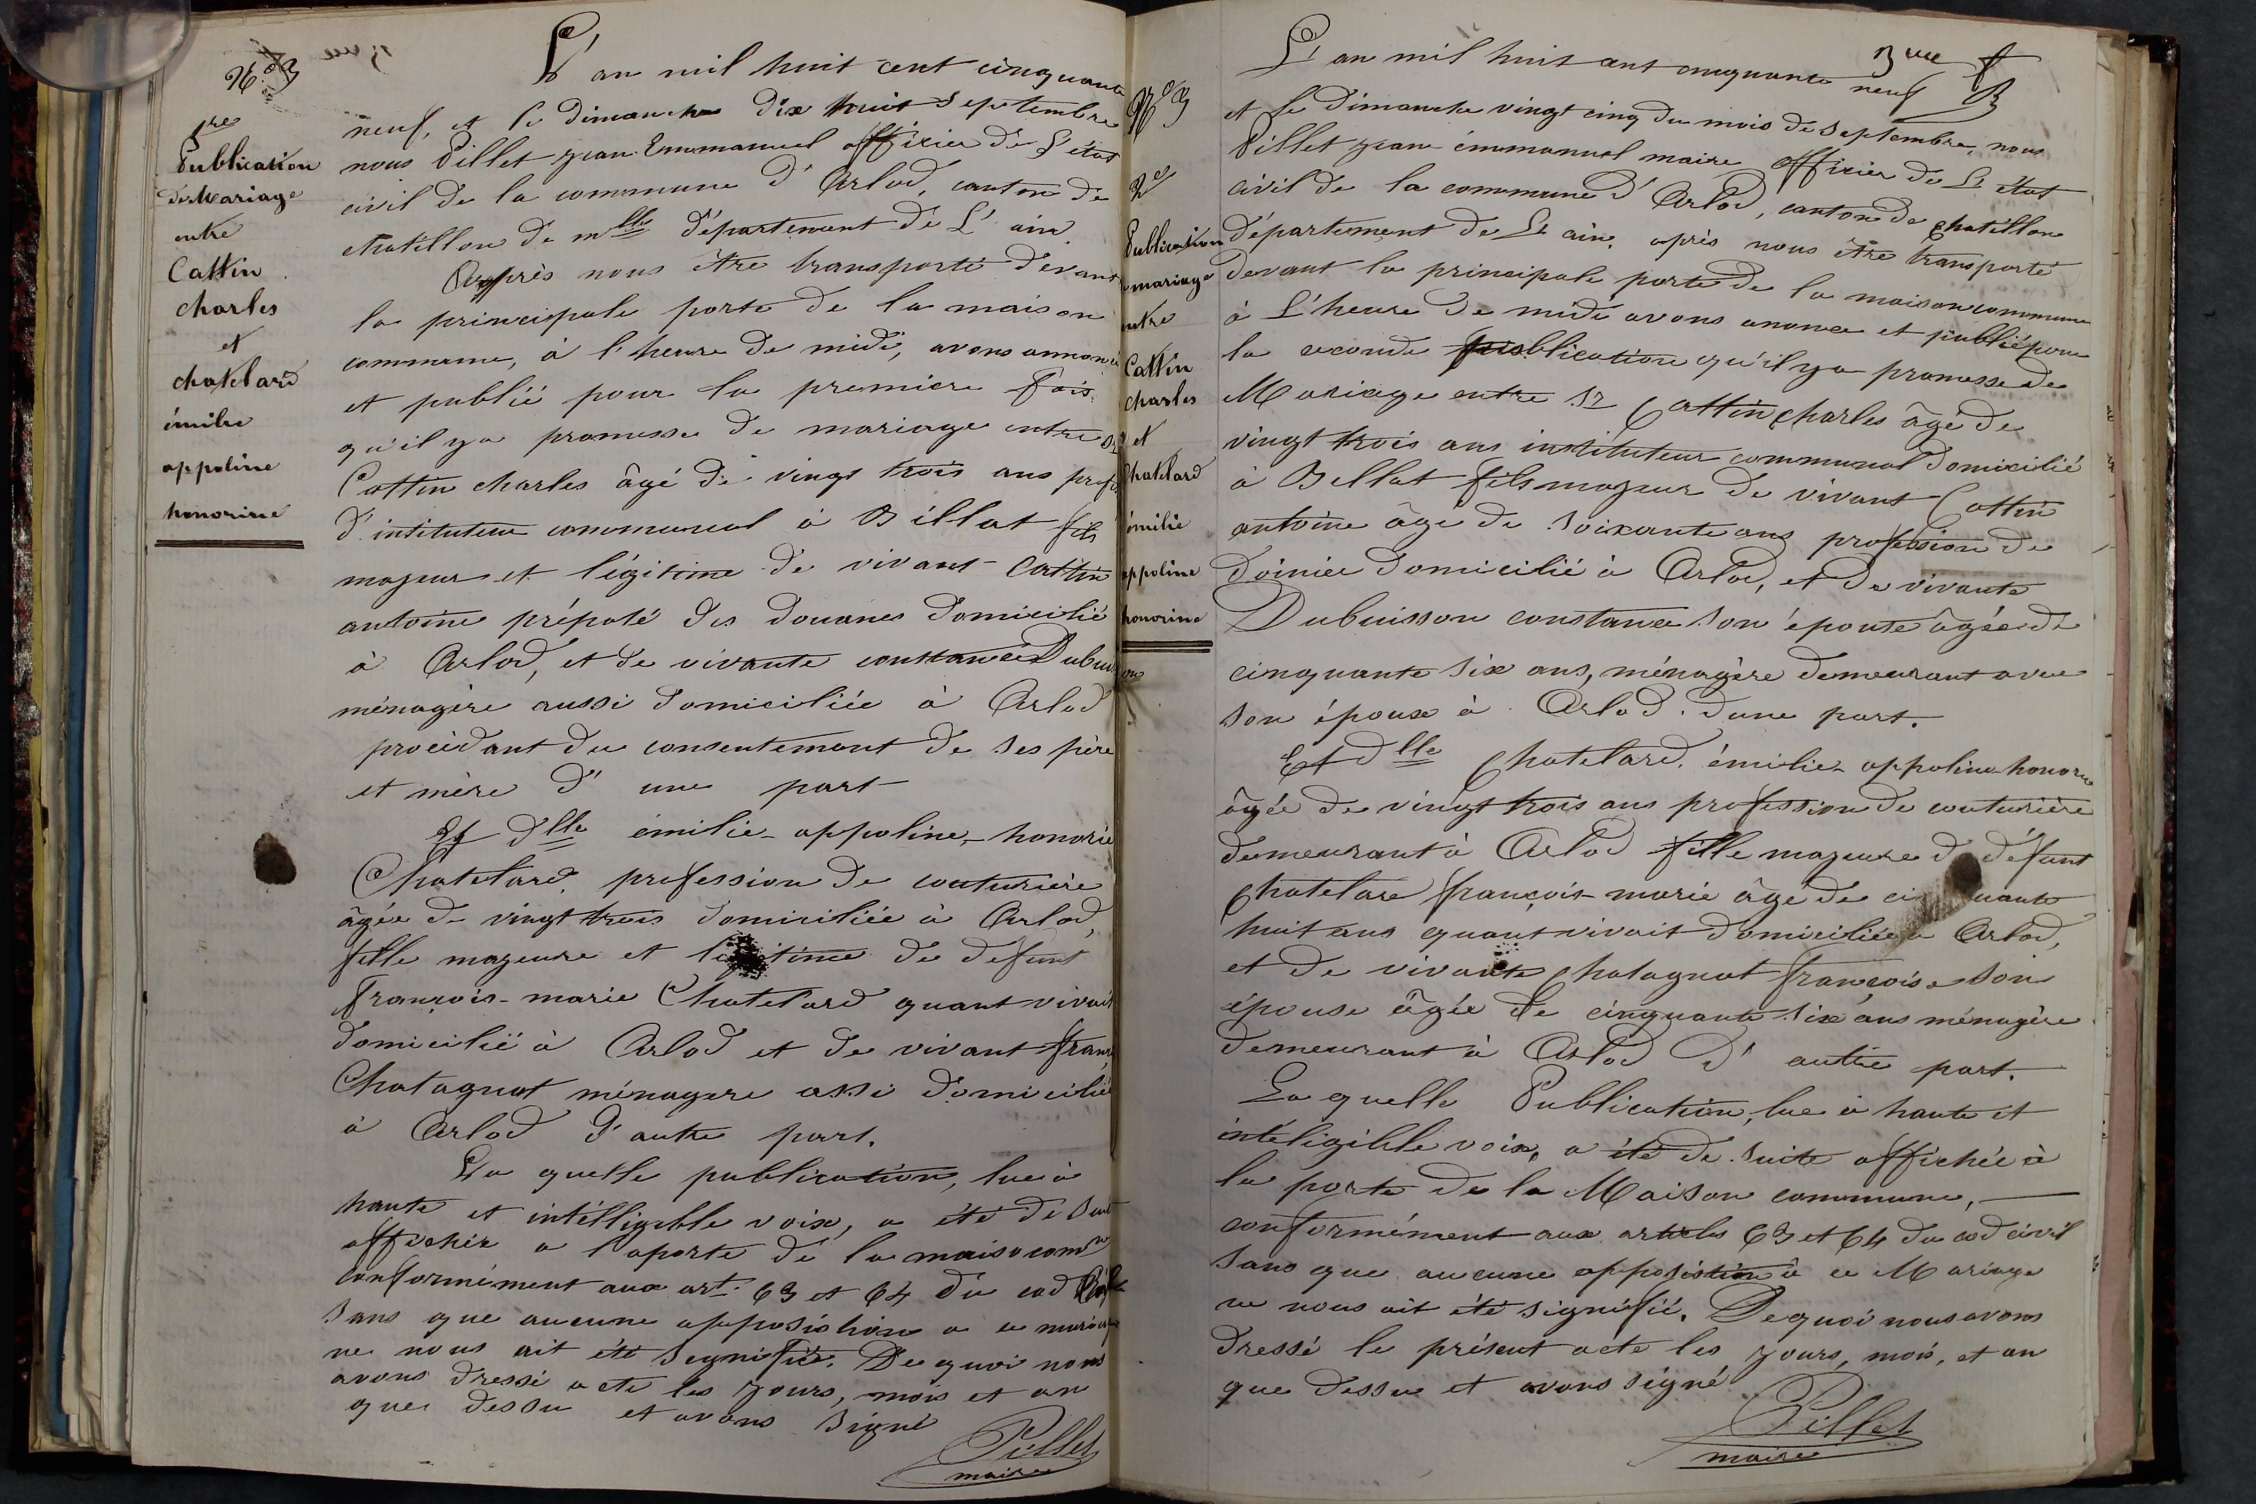 N° 3
1re
Publication
de Mariage
entre
Cattin
charles
et
chatelard
émilie
appoline
honorine
L'an mil huit cent cinquante
neuf, et le dimanche dix huit septembre
nous Pillet jean Emmanuel officier de l'état
civil de la commune d'Arlod, canton de
chatillon de mlle département de L'ain
Apprès nous être transporté devant
la principale porte de la maison
commune, à l'heure de midi, avons annoncé
et publié pour la premiere fois
qu'il ya promesse de mariage entre sr
Cattin charles âgé de vingt trois ans prof
d'instituteur communal à Billat fils
majeur et légitime de vivant Cattin
antoine préposé des douanes domicilié
à Arlod, et de vivante constance Dubuisson
ménagère aussi domiciliée à Arlod
procédant du consentement de ses père
et mère d'une part
Et dlle émilie-appoline-honorie
Chatelard, profession de couturière
âgée de vingt trois domiciliée à Arlod,
fille majeure et légitime de defunt
François-marie Chatelard quant vivait
domicilié à Arlod et de vivant franç
Chatagnat ménagere assi domicilié
à Arlod d'autre part.
La quelle publication, lue à
haute et intélligible voix, a été de suit
affichér a laporte de la maiso comne
conformément aux art. 63 et 64 du cod civil
sans que aucune opposistion a ce mariage
ne nous ait été signifié. De quoi nous
avons dressé acte les jours, mois et an
que dessu et avons signé
Pillet
maire
3me
N° 3
2e
Publication
mariage
entre
Cattin
charles
et
Chatelard
émilie
appoline
honorine
L'an mil huit cent cinquante neuf
et le dimanche vingt cinq du mois de septembre, nous
Pillet jean émmanuel maire officier de L'état
civil de la commune d'Arlod, canton de chatillon
département de L'ain, après nous être transporté
devant la principale porte de la maison commune
à L'heure de midi avons anonce et publié pour
la seconde publication qu'il ya promesse de
Mariage entre sr Cattin Charles âgé de
vingt trois ans instituteur communal domicilié
à Bellat fils majeur de vivant Cattin
antoine âgé de soixante ans profession de
doinier domicilié à Arlod, et de vivante
Dubuisson constance son épouse âgée de
cinquante six ans, ménagère demeurant avec
son époux à Arlod. d'une part.
Et dlle Chatelard, émilie-appoline-honorine
âgée de vingt trois ans profession de couturière
demeurant à Arlod fille majeure d défunt
Chatelare françois-marie âgé de cinquante
huit ans quant vivait domiciliée a Arlod,
et de vivante Chatagnat françoise son
épouse âgée de cinquante six ans ménagère
demeurant à Arlod d'autre part.
La quelle Publication, lue à haute et
inteligible voix, a été de suite affichée à
la porte de la Maison commune,
conformément aux articles 63 et 64 du cod civil
sans que aucune opposistion à ce Mariage
ne nous ait été signifié. De quoi nous avons
dressé le présent acte les jours, mois, et an
que dessu et avons signé
Pillet
maire